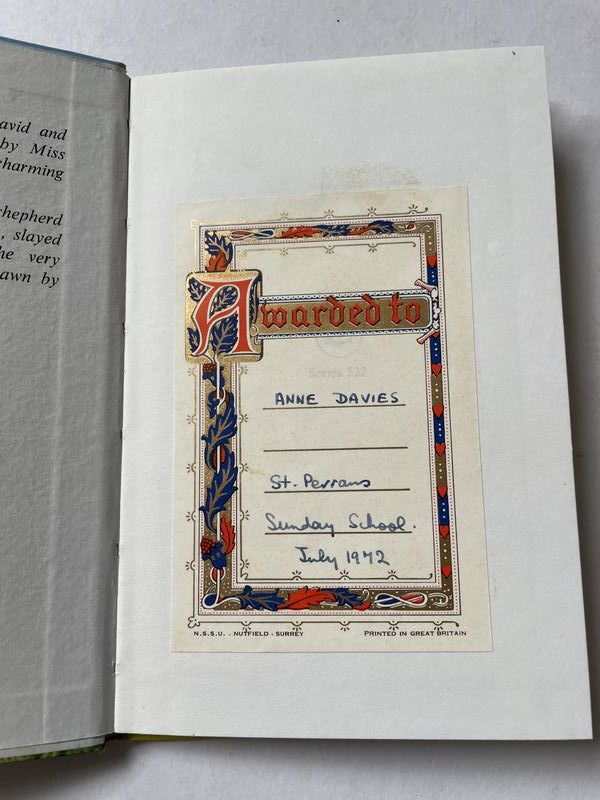 avid and
by Miss
charming
shepherd
, slayed
he very
awn by
Awarded to
Series 522
ANNE DAVIES
St. Perrans
Sunday School.
July 1972
N.S.S.U. - NUTFIELD - SURREY PRINTED IN GREAT BRITAIN